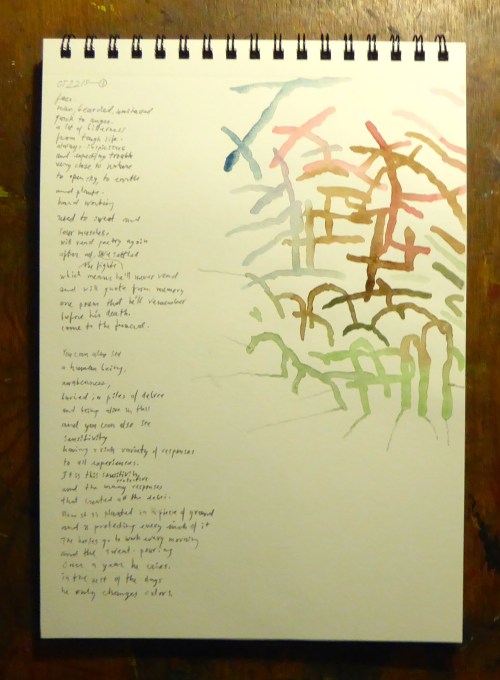 face.
man, bearded,
a lot of bitterness
from tough life.
always suspicious
and expecting trouble
very close to nature
to open sky to earth
and plants.
hard working
used to sweat and
sour muscles.
will read poetry again
after
the fights
which means he'll never read
and will quote from memory
one poem that he'll remember
before his teeth
come to the funeral.
You can also see
a human being,
awareness,
buried in piles of debris
and being also in this
and you can also see
sensitivity
having a rich variety of responses
to all experiences.
It is this sensitivity
and the many responses
that created all the debri.
Now it is planted in a piece of ground
and is protecting every inch of it
The horses go to work every morning
and the sweat pouring
once a year he
in the rest of the days
he only changes colors